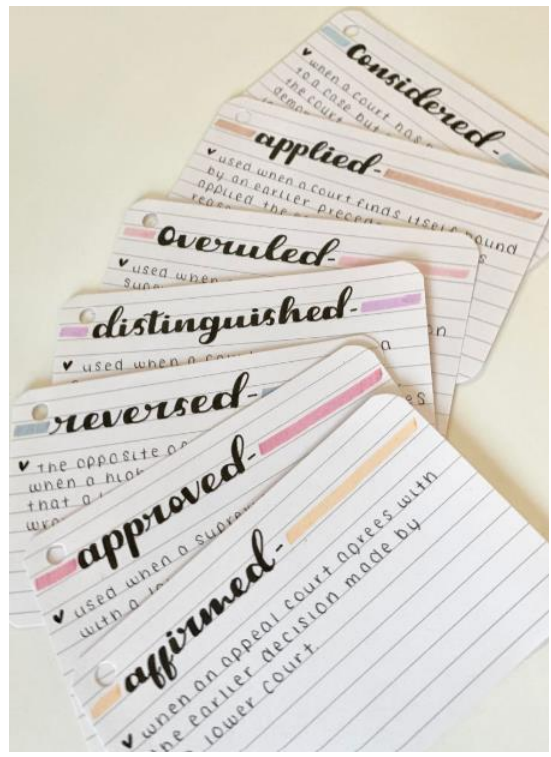 considered-
when a court has
to a case but
the court
applied-
used when a court finds itself bound
by an earlier preced
applied the
reas
overuled-
used when
distinguished-
used when a
reversed-
the opposite
when a high
that a
approved-
used when a supre
with a
affirmed-
when an appeal court agrees with
the earlier decision made by
lower court.